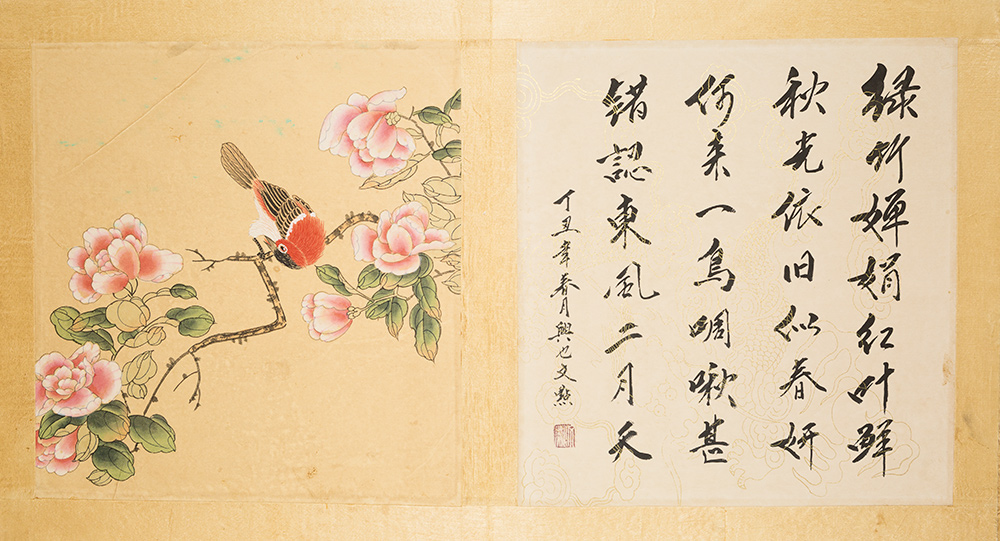 緑竹婵娟红叶鮮
秋光依旧似春妍
何来一鳥啁啾甚
錯認東風二月天
丁丑年春月興也文點